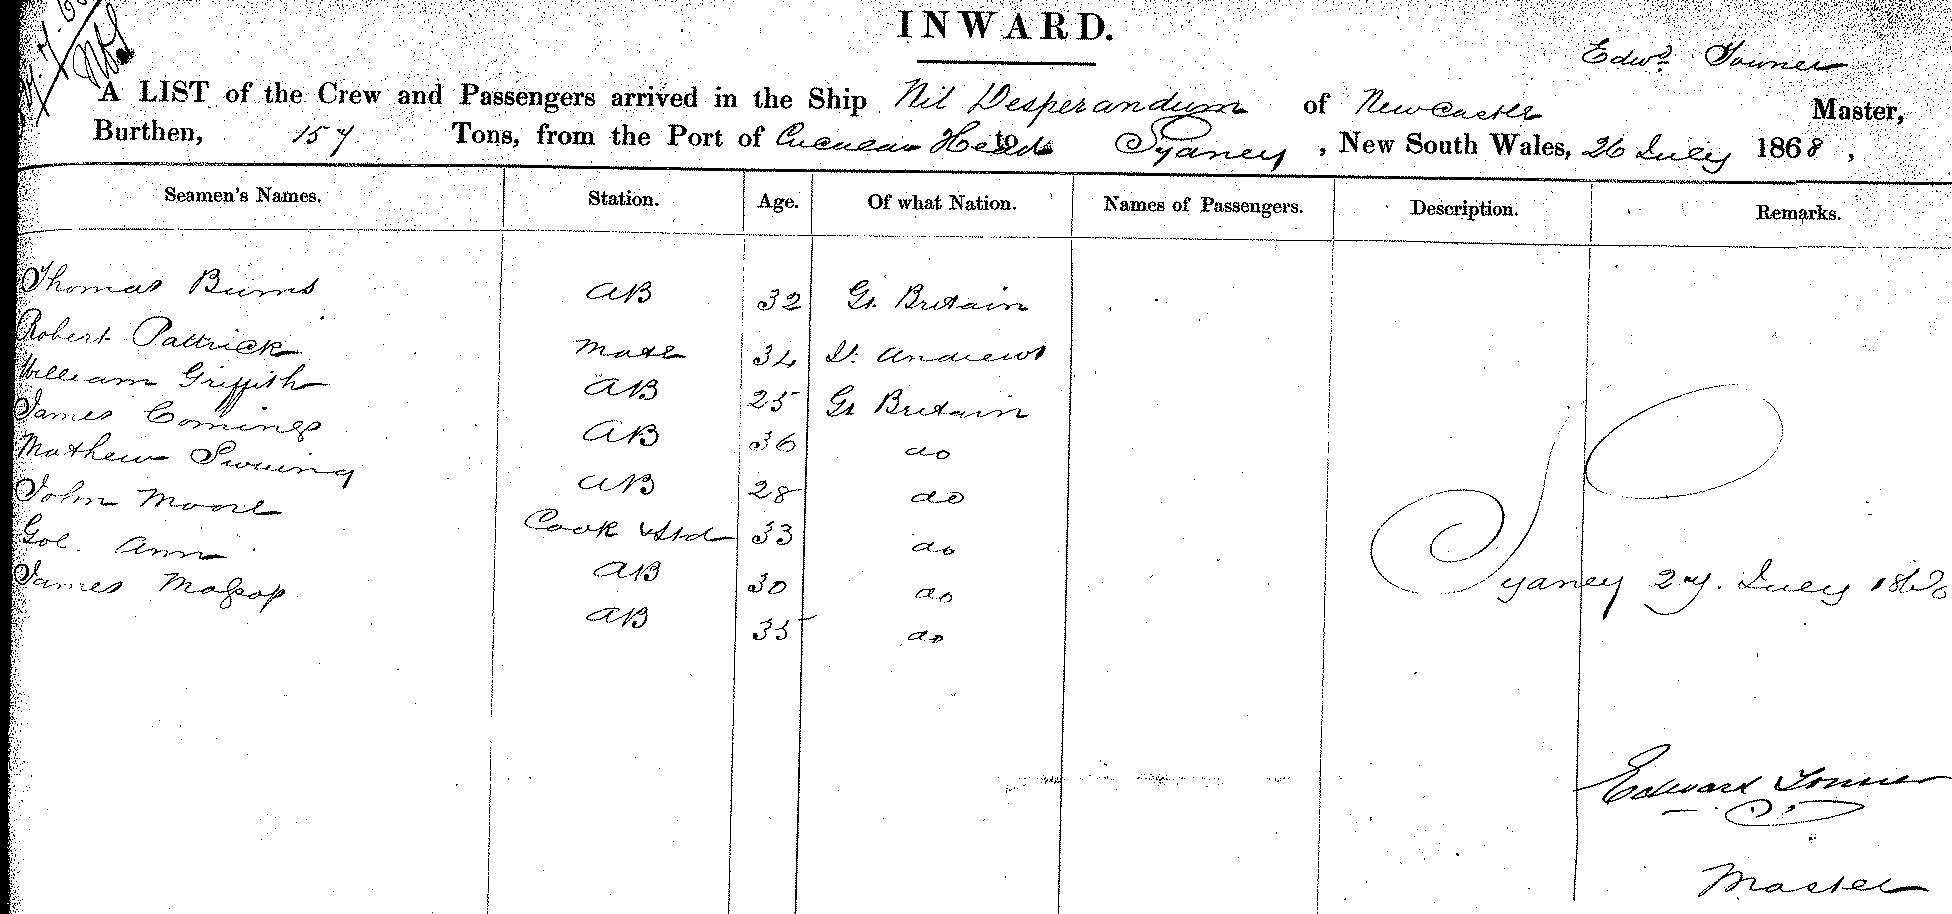 INWARD.
Edwd. Tonner
A LIST of the Crew and Passengers arrived in the Ship Nil Desperandum of Newcastle Master,
Burthen, 157 Tons, from the Port of Heads to Sydney, New South Wales, 26 July 1868,
Seamen's Names. Station. Age. Of what Nation. Names of Passengers. Description. Remarks.
Thomas Burns AB 32 Gt. Britain
Robert Pattrick Mate 34 St. Andrews
William Griffith AB 25 Gt Britain
James Comings AB 36 do
Mathew AB 28 do
John Moore Cook & Std 33 do
Ann AB 30 do
James AB 35 do
Sydney 27. July 1868
Edward Tonner
Master